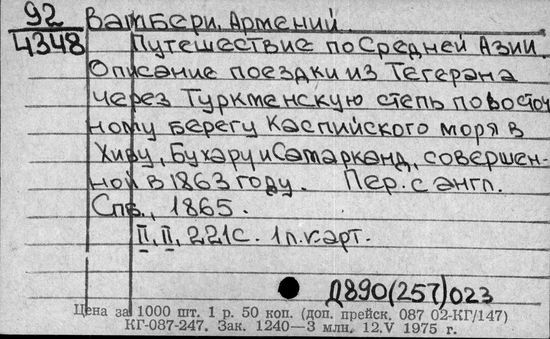 92
4348
Вамбери, Армений.
Путешествие по Средней Азии.
Описание поездки из Тегерана
через Туркменскую степь по восточ
ному берегу Каспийского моря в
Хиву, Бухару и Самарканд, совершен-
ной в 1863 году. Пер. с англ.
Спб., 1865.
II, II, 221с. 1 л. карт.
Д890(257)023
Цена за 1000 шт. 1 р. 50 коп. (доп. прейск. 087 02-КГ/147)
КГ-087-247. Зак. 1240—3 млн. 12.V 1975 г.